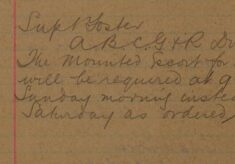 Supt Foster
A.B.C. G & R Dr
The Mounted Escort for
will be required at 9
Sunday morning instea
Saturday as ordered,